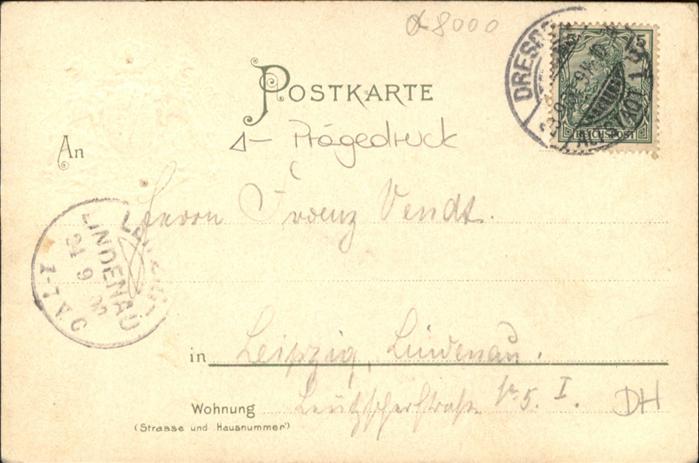 8000
DRESDEN
5
REICHSPOST
POSTKARTE
Prägedruck
An
Herrn Franz Vendt.
LEIPZIG
LINDENAU
24 9
1-7 V.
in Leipzig, Lindenau.
Wohnung Leutzscherstraße Nr. 5. I.
DH
(Strasse und Hausnummer)